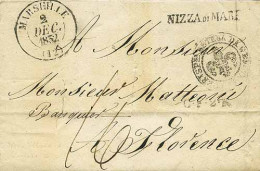 MARSEILLE
2
DEC.
1832
NIZZA DI MARE
A Monsieur
Monsieur Matteoni
Banquier
A Florence